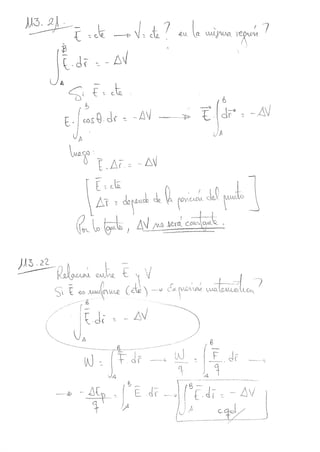 M3.21.
E̅ = cte → V = cte? en la misma región?
∫_A^B E̅·dr̅ = -ΔV
Si E̅ = cte
E·∫_A^B cosθ·dr = -ΔV → E̅ ∫_A^B dr̅ = -ΔV
luego
E̅·Δr̅ = -ΔV
[ E̅ = cte
Δr̅ = depende de la posición del punto ]
Por lo tanto, ΔV no será constante.
M3.22
Relación entre E̅ y V
Si E̅ es uniforme (cte) → Expresión matemática?
∫_A^B E̅·dr̅ = -ΔV
W = ∫_A^B F̅ dr̅ → W/q = ∫_A^B F̅/q · dr̅ →
→ -ΔEp/q = ∫_A^B E̅ dr̅ → ∫_A^B E̅·dr̅ = -ΔV
c.q.d